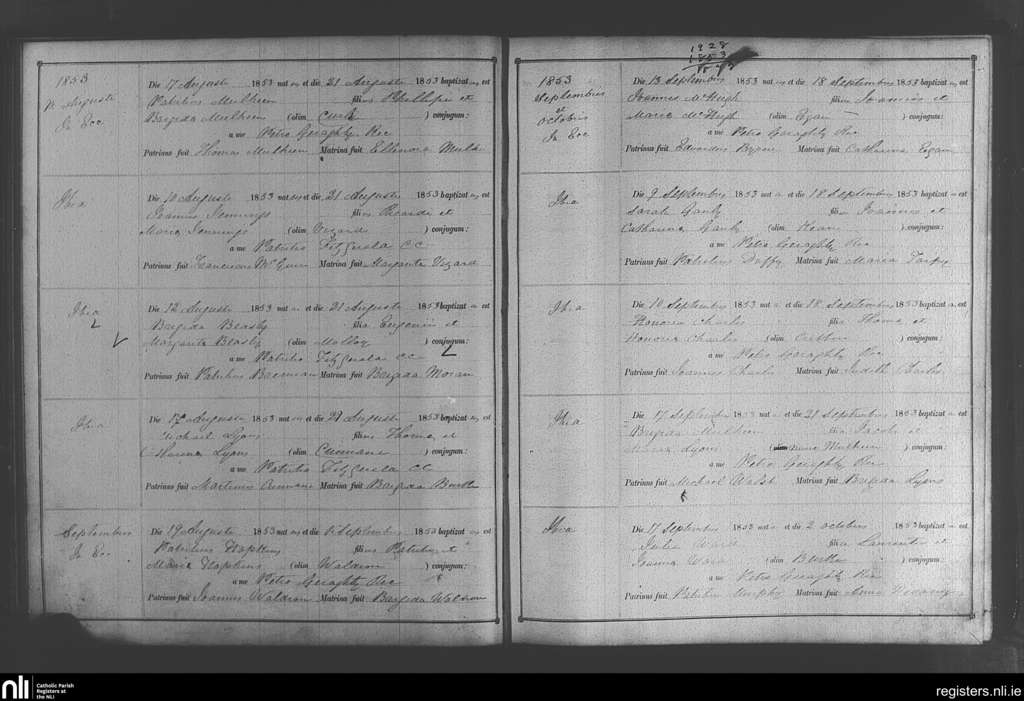 1853
Augusti
In Ecc
Die 17 Augusti 1853 nat us et die 21 Augusti 1853 baptizat us est
Patritius Mulkeen filius Phillippi et
Brigida Mulkeen (olim ) conjugum:
a me Petro Geraghty Rcc
Patrinus fuit Thomas Mulkeen Matrina fuit Ellenora
Ibia
Die 10 Augusti 1853 nat us et die 21 Augusti 1853 baptizat us est
Joannes Jennings filius Ricardi et
Maria Jennings (olim ) conjugum:
a me Patritio CC
Patrinus fuit Matrina fuit Margarita
Ibia
Die 12 Augusti 1853 nat a et die 21 Augusti 1853 baptizat a est
Brigida Beasly filia Eugenius et
Margarita Beasly (olim Molloy ) conjugum:
a me Patritio CC
Patrinus fuit Patritius Matrina fuit Brigida Moran
Ibia
Die Augusti 1853 nat us et die Augusti 1853 baptizat us est
Michael Lyons filius Thoma et
Lyons (olim Cunnane ) conjugum:
a me Patritio CC
Patrinus fuit Martinus Cunnane Matrina fuit Brigida Burke
Septembris
In Ecc
Die 19 Augusti 1853 nat us et die Septembris 1853 baptizat us est
Patritius Hopkins filius Patritii et
Maria Hopkins (olim Waldron ) conjugum:
a me Petro Geraghty Rcc
Patrinus fuit Joannes Waldron Matrina fuit Brigida Waldron
1928
1853
1853
Septembris
et
Octobris
In Ecc
Die 13 Septembris 1853 nat us et die 18 Septembris 1853 baptizat us est
Joannes McHugh filius Joannis et
Maria McHugh (olim Egan ) conjugum:
a me Petro Geraghty Rcc
Patrinus fuit Edwardus Byrne Matrina fuit Catharina Egan
Ibia
Die 9 Septembris 1853 nat a et die 18 Septembris 1853 baptizat a est
Sarah Ganty filia Joannis et
Catharina Ganty (olim Keane ) conjugum:
a me Petro Geraghty Rcc
Patrinus fuit Patritius Duffy Matrina fuit Maria
Ibia
Die 10 Septembris 1853 nat a et die 18 Septembris 1853 baptizat a est
Honoria Charles filia Thoma et
Honoria Charles (olim ) conjugum:
a me Petro Geraghty Rcc
Patrinus fuit Joannes Charles Matrina fuit Judith
Ibia
Die 17 Septembris 1853 nat a et die 21 Septembris 1853 baptizat a est
Brigida Mulkeen filia Jacobi et
Lyons (olim Mulkeen ) conjugum:
a me Petro Geraghty Rcc
Patrinus fuit Michael Walsh Matrina fuit Brigida Lyons
Ibia
Die 17 Septembris 1853 nat a et die 2 Octobris 1853 baptizat a est
Julia Ward filia Laurentii et
Joanna Ward (olim Burke ) conjugum:
a me Petro Geraghty Rcc
Patrinus fuit Patritius Murphy Matrina fuit Anna
nli Catholic Parish
Registers at
the NLI
registers.nli.ie